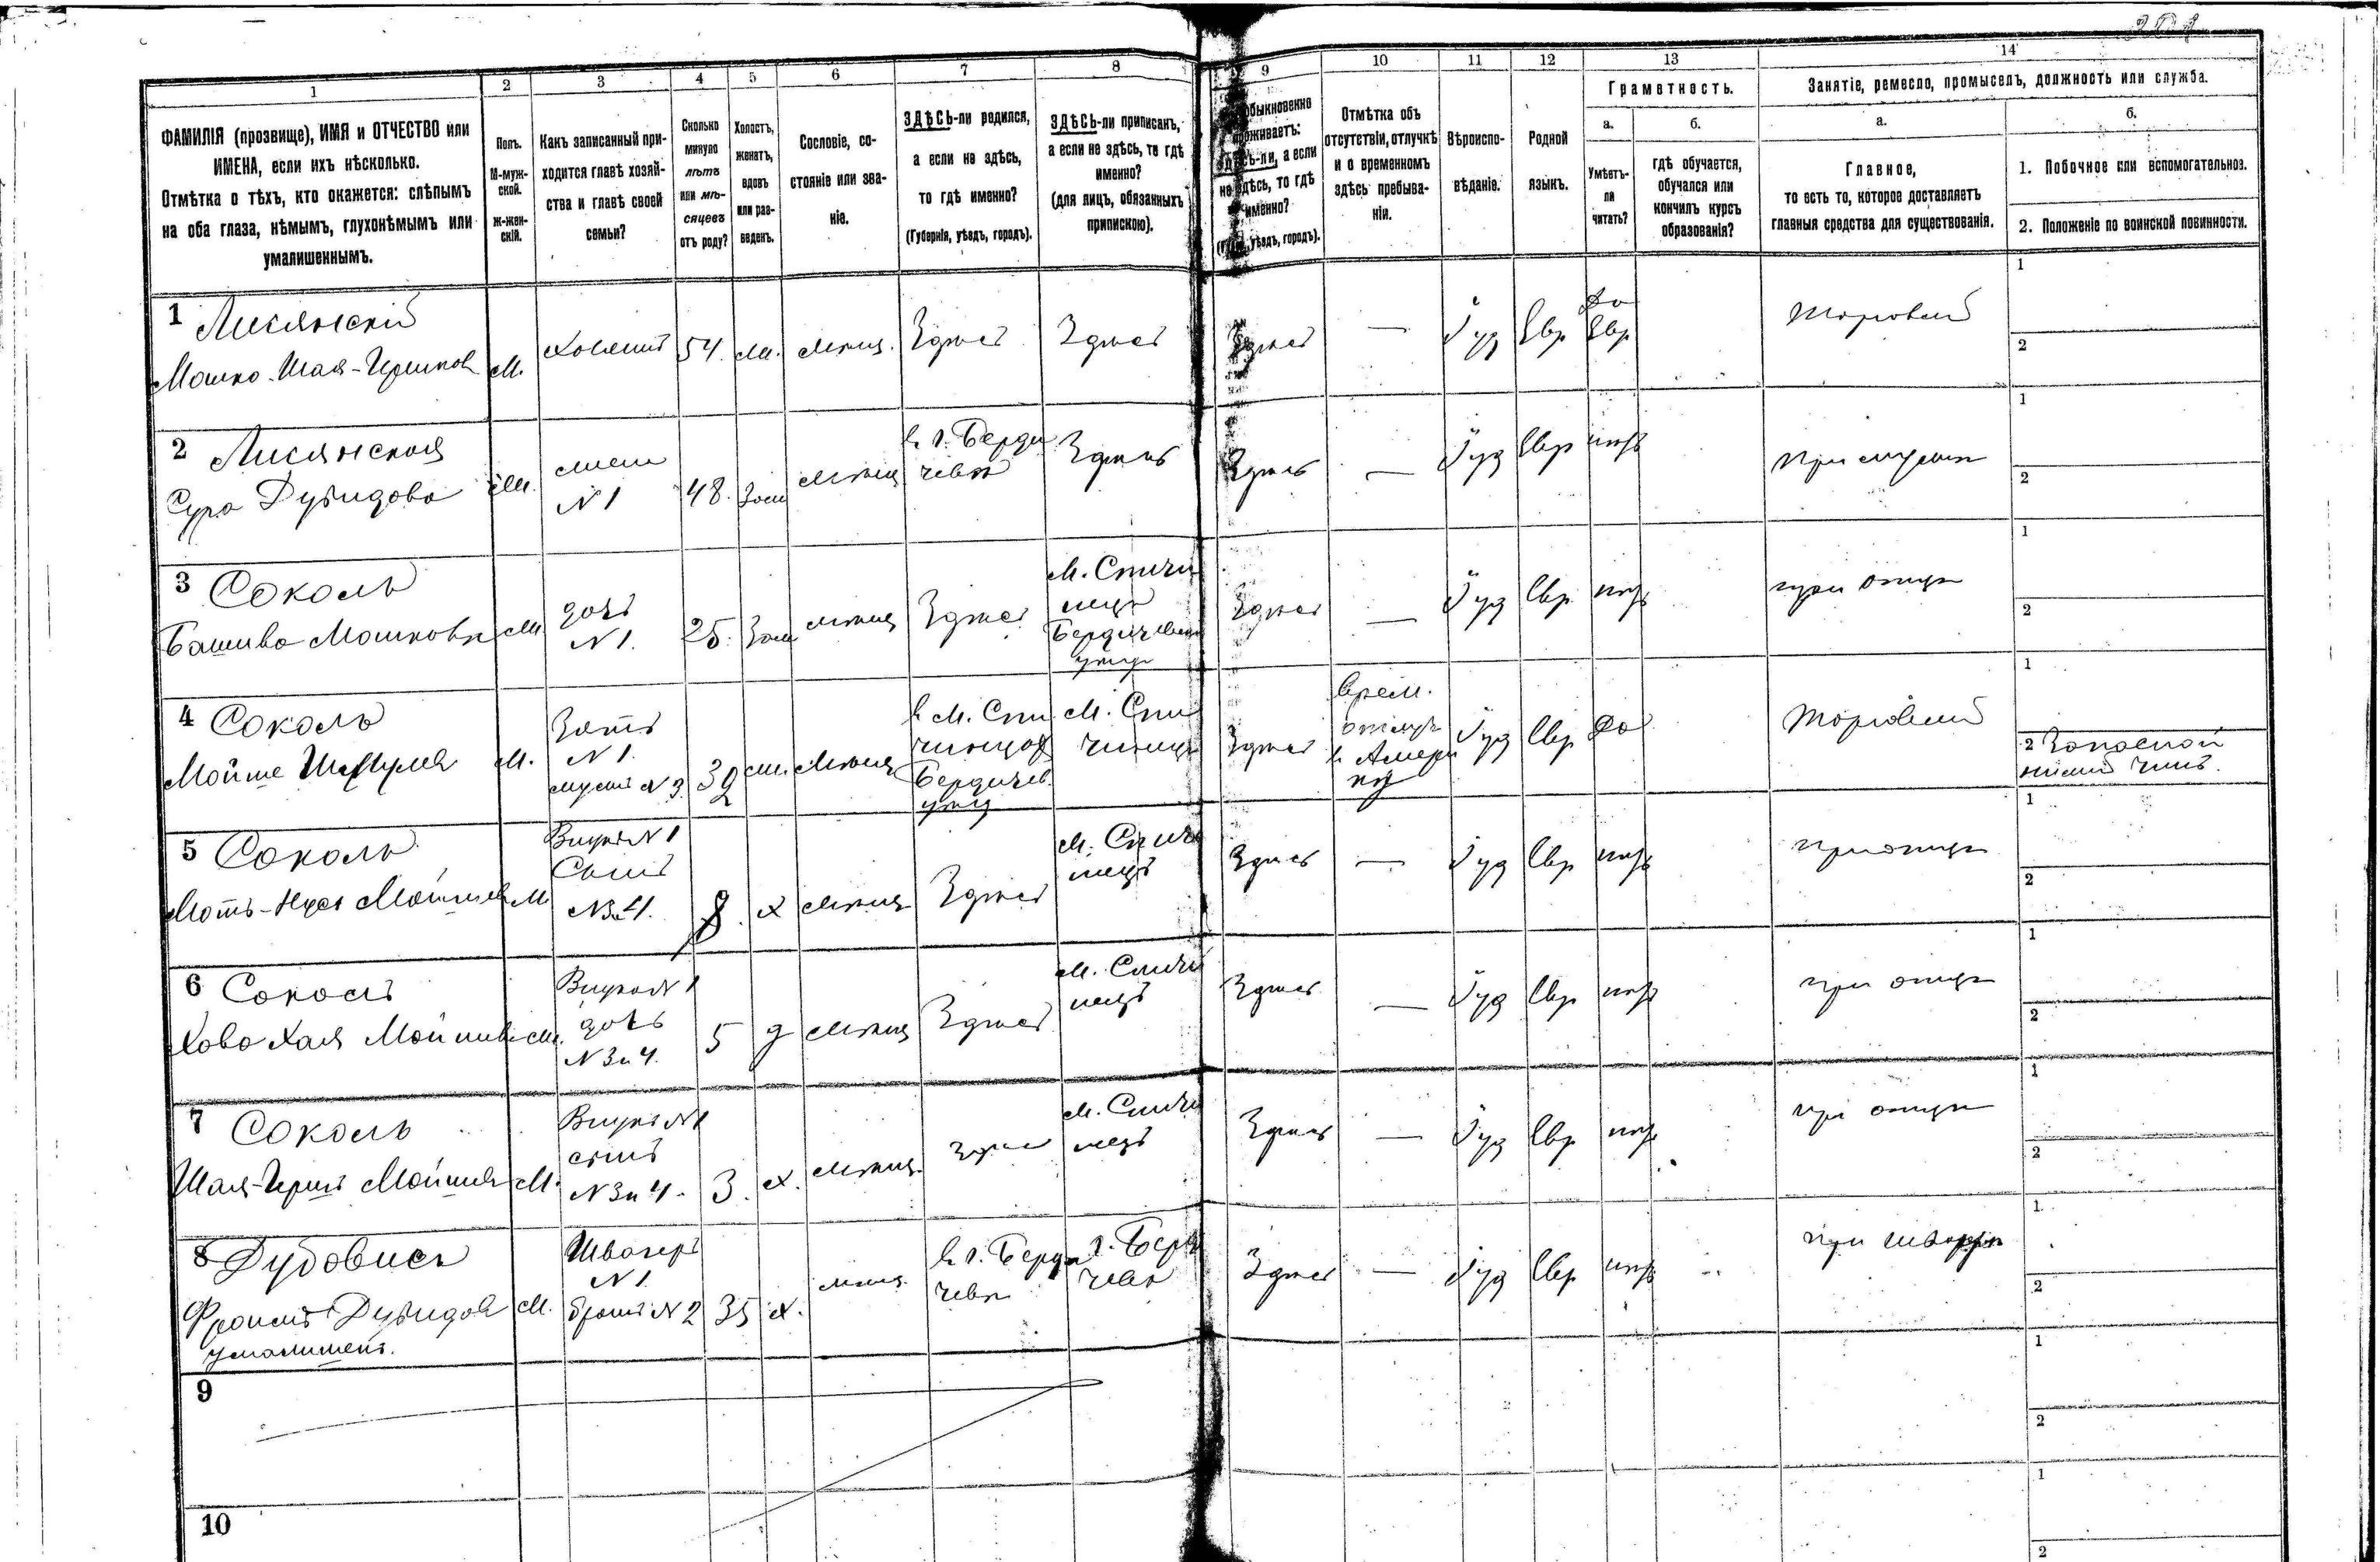 1 2 3 4 5 6 7 8 9 10 11 12 13 14
ФАМИЛІЯ (прозвище), ИМЯ и ОТЧЕСТВО или
ИМЕНА, если ихъ нѣсколько.
Отмѣтка о тѣхъ, кто окажется: слѣпымъ
на оба глаза, нѣмымъ, глухонѣмымъ или
умалишеннымъ.
Полъ.
М-муж-
ской.
Ж-жен-
скій.
Какъ записанный при-
ходится главѣ хозяй-
ства и главѣ своей
семьи?
Сколько
минуло
лѣтъ
или мѣ-
сяцевъ
отъ роду?
Холостъ,
женатъ,
вдовъ
или раз-
веденъ.
Сословіе, со-
стояніе или зва-
ніе.
ЗДѢСЬ-ли родился,
а если не здѣсь,
то гдѣ именно?
(Губернія, уѣздъ, городъ).
ЗДѢСЬ-ли приписанъ,
а если не здѣсь, то гдѣ
именно?
(для лицъ, обязанныхъ
припискою).
обыкновенно
проживаетъ:
ЗДѢСЬ-ли, а если
не здѣсь, то гдѣ
именно?
уѣздъ, городъ).
Отмѣтка объ
отсутствіи, отлучкѣ
и о временномъ
здѣсь пребыва-
ніи.
Вѣроиспо-
вѣданіе.
Родной
языкъ.
Грамотность.
а.
Умѣетъ-
ли
читать?
б.
гдѣ обучается,
обучался или
кончилъ курсъ
образованія?
Занятіе, ремесло, промыселъ, должность или служба.
а.
Главное,
то есть то, которое доставляетъ
главныя средства для существованія.
б.
1. Побочное или вспомогательное.
2. Положеніе по воинской повинности.
1 Лисянскій
Мошко-Шая-Гершков
М.
хозяинъ
54.
ж.
мѣщ.
Здѣсь
Здѣсь
Здѣсь
—
Іуд
Евр
Да
Евр
Торговый
1
2
2 Лисянская
Сура Дувидова
Ж.
жена
N 1
48.
Зам
мѣщ
в г. Берди
чевѣ
Здѣсь
Здѣсь
—
Іуд
Евр
нѣтъ
При мужѣ
1
2
3 Соколъ
Башива Мошкова
Ж
дочь
N 1.
25.
Зам
мѣщ
Здѣсь
М. Спичи
нецъ
Бердичев
уѣзд
Здѣсь
—
Іуд
Евр
нѣтъ
при отцѣ
1
2
4 Соколъ
Мойше
М.
Зять
N 1.
мужъ N 3.
32
ж.
мѣщ
в М. Спи
чинцах
Бердичев.
уѣзд
М. Спи
чинецъ
Здѣсь
Врем.
в Амери
ку
Іуд
Евр
Да
Торговый
1
2 Запасной
нижній чинъ.
5 Соколъ
Моть-Нусь Мойшев
М
Внукъ N 1
Сынъ
N 3 и 4.
8.
Х
мѣщ
Здѣсь
М. Спичи
нецъ
Здѣсь
—
Іуд
Евр
нѣтъ
при отцѣ
1
2
6 Соколъ
Хова Хая Мойшев
Ж.
Внучка N 1
дочь
N 3 и 4.
5
д
мѣщ
Здѣсь
М. Спичи
нецъ
Здѣсь
—
Іуд
Евр
нѣтъ
при отцѣ
1
2
7 Соколъ
Шая-Гершъ Мойшев
М.
Внукъ N 1
сынъ
N 3 и 4.
3.
Х.
мѣщ.
Здѣсь
М. Спичи
нецъ
Здѣсь
—
Іуд
Евр
нѣтъ
при отцѣ
1
2
8 Дубовисъ
Фроимъ Дувидов
умалишен.
М.
Швагеръ
N 1.
братъ N 2
35
Х.
мѣщ.
в г. Берди
чевѣ
г. Берди
чевѣ
Здѣсь
—
Іуд
Евр
нѣтъ
при швагрѣ
1
2
9
1
2
10
1
2